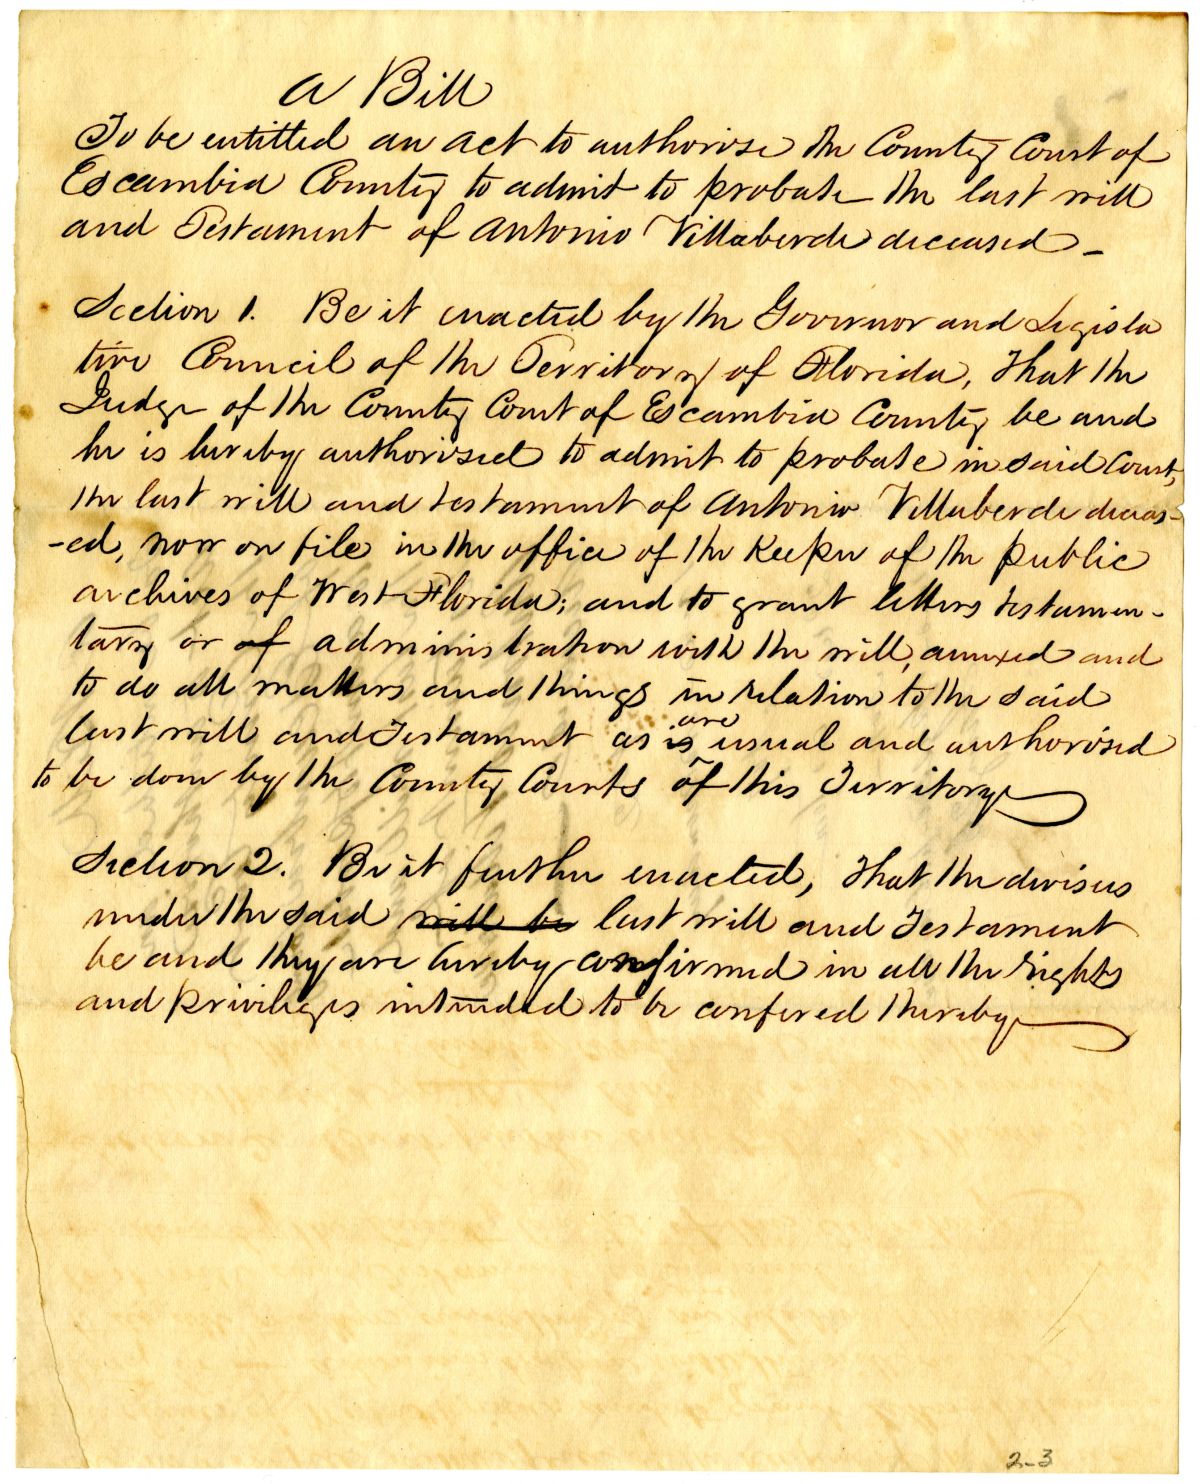 a Bill
To be entitled an act to authorise the County Court of
Escambia County to admit to probate the last will
and Testament of Antonio Villaberde deceased –
Section 1. Be it enacted by the Governor and Legisla
tive Council of the Territory of Florida, That the
Judge of the County Court of Escambia County be and
he is hereby authorised to admit to probate in said Court,
the last will and testament of Antonio Villaberde deceas-
-ed, now on file in the office of the Keeper of the public
archives of West Florida; and to grant letters testamen-
tary or of administration with the will, annexed and
to do all matters and things in relation to the said
last will and Testament as is are usual and authorised
to be done by the County Courts of this Territory
Section 2. Be it further enacted, That the devisees
under the said will be last will and Testament
be and they are hereby confirmed in all the rights
and privileges intended to be confered thereby
2-3